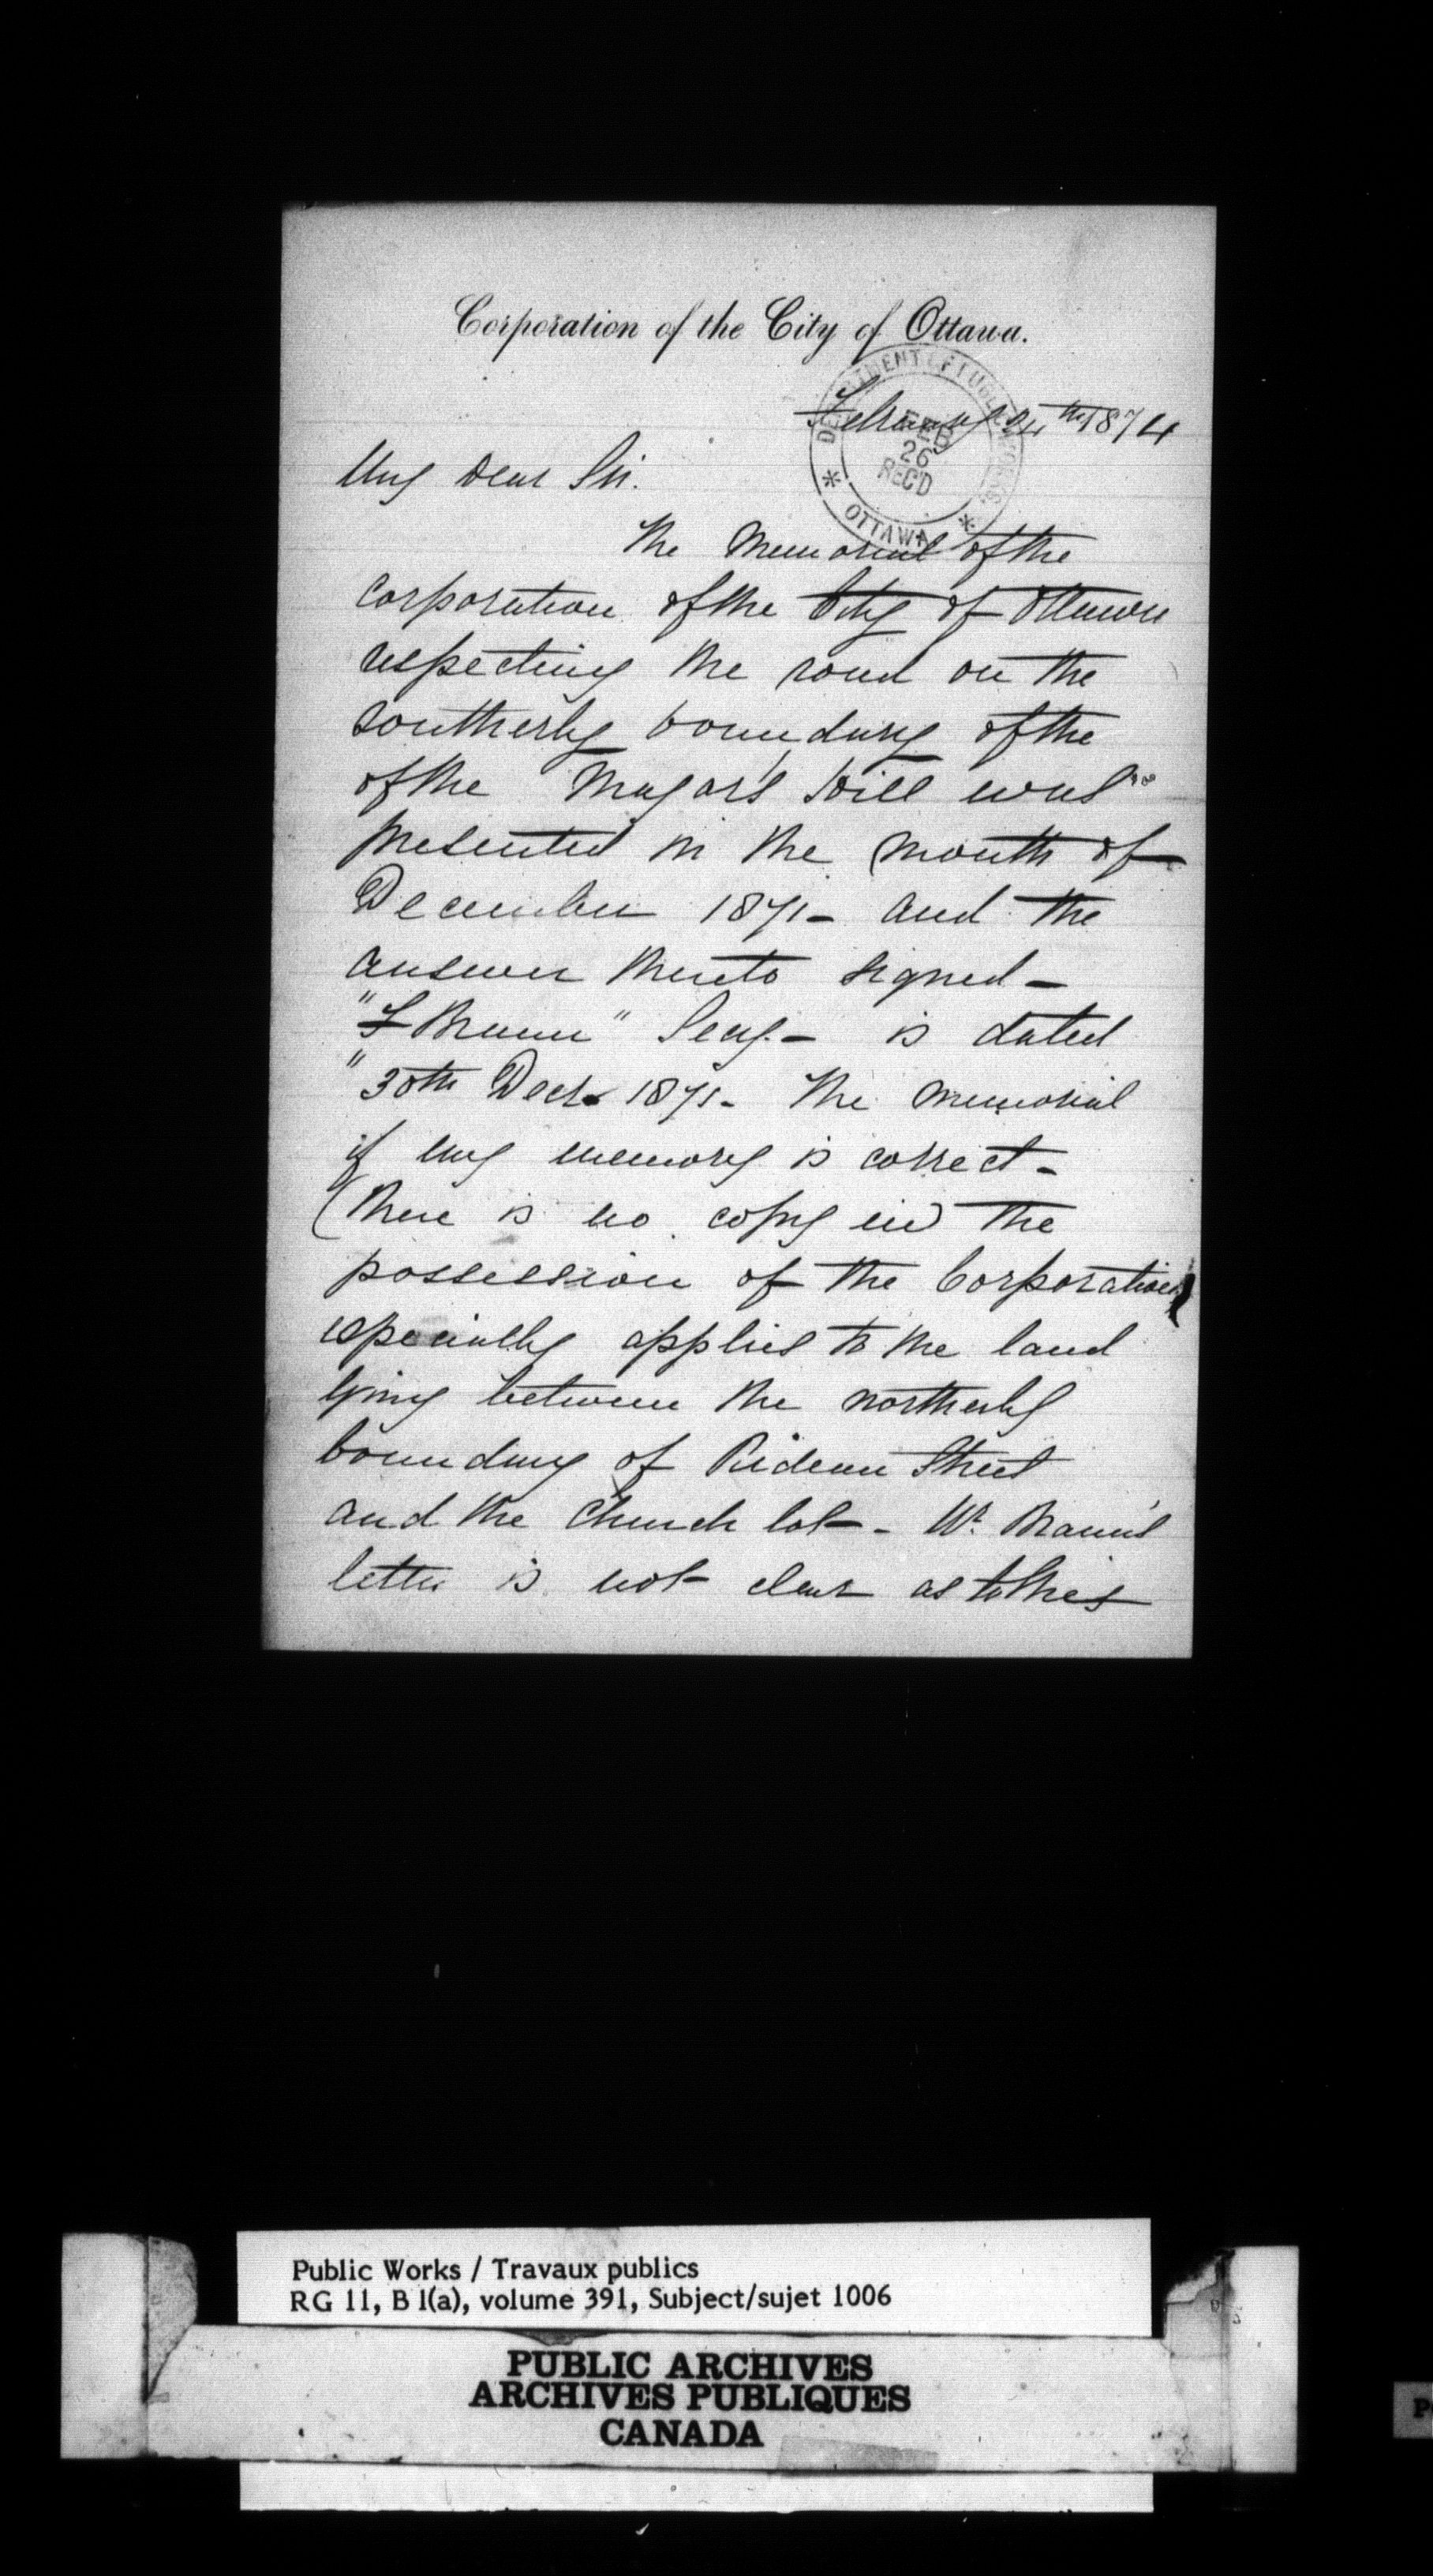 Corporation of the City of Ottawa.
February 24th 1874
DEPARTMENT OF PUBLIC WORKS
FEB
26
REC'D
* OTTAWA *
My Dear Sir.
The Memorial of the
corporation of the City of Ottawa
respecting the road on the
southerly boundary of the
of the Major's Hill was
presented in the month of
December 1871 - and the
answer thereto signed -
"F Braun" Secy. - is dated
"30th Decr. 1871 - The memorial
if my memory is correct -
(there is no copy in the
possession of the Corporation)
especially applies to the land
lying between the northerly
boundary of Rideau Street
and the Church lot - Mr. Braun's
letter is not clear as to this
Public Works / Travaux publics
RG 11, B 1(a), volume 391, Subject/sujet 1006
PUBLIC ARCHIVES
ARCHIVES PUBLIQUES
CANADA